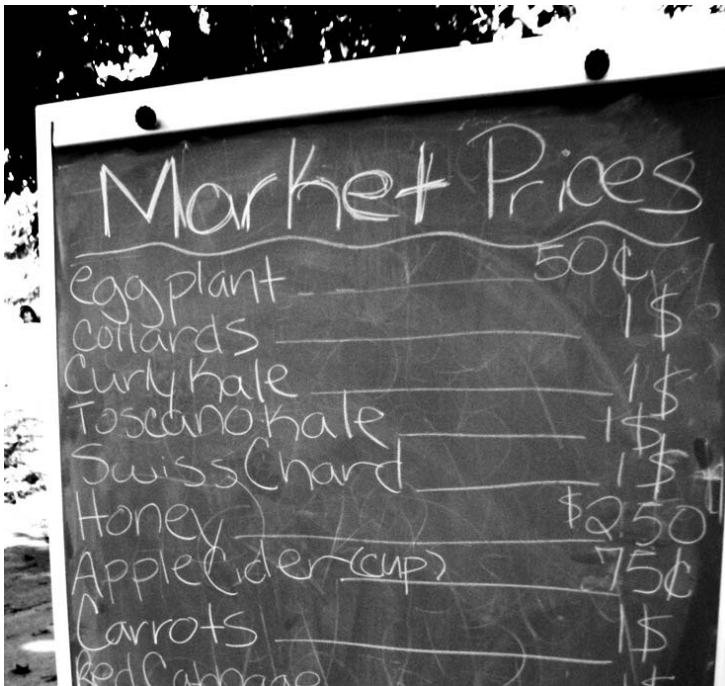 Market Prices
eggplant 50¢
collards 1$
Curly Kale 1$
Toscano Kale 1$
Swiss Chard 1$
Honey $250
Apple Cider (cup) .75¢
Carrots 1$
Red Cabbage 1$